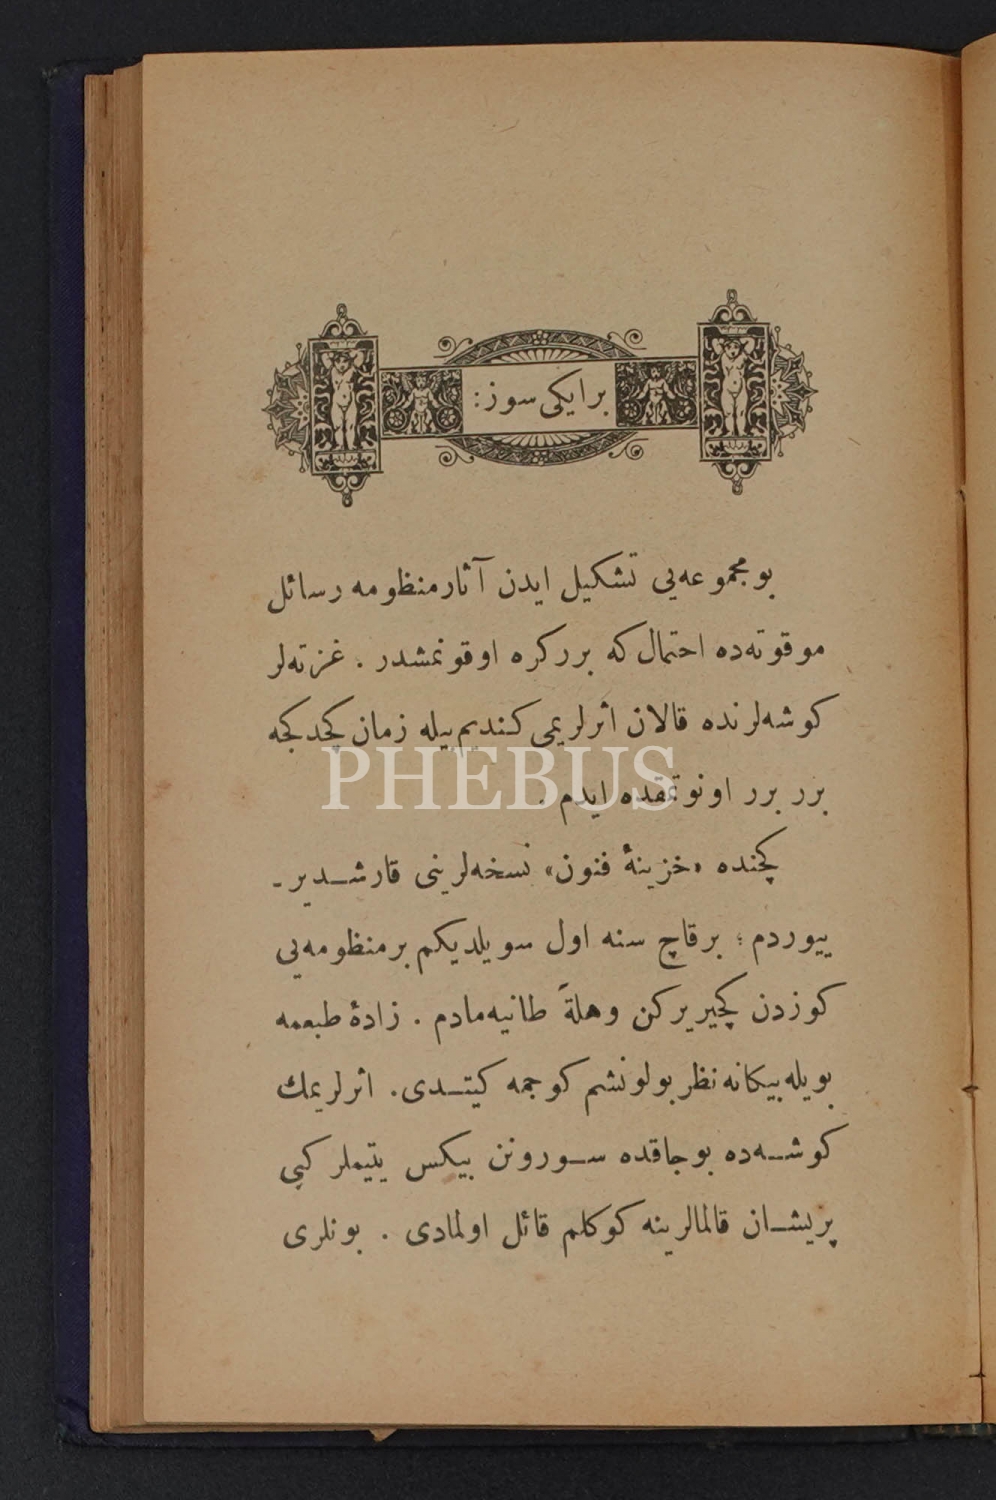 بر ایکی سوز:
بو مجموعه‌یی تشکیل ایدن آثار منظومه رسائل
موقوته‌ده احتمال که برر کره اوقونمشدر . غزته‌لر
کوشه‌لرنده قالان اثرلریمی کندیم بیله زمان کچدکجه
برر برر اونوتمقده ایدم .
PHEBUS
کچنده «خزینهٔ فنون» نسخه‌لرینی قارشـدیر ـ
ییوردم ؛ برقاچ سنه اول سویلدیکم بر منظومه‌یی
کوزدن کچیریرکن وهلةً طانیه‌مادم . زادهٔ طبعمه
بویله بیکانه نظر بولونشم کوجمه کیتـدی. اثرلریمك
کوشـه‌ده بوجاقده سـورونن بیکس یتیملر کبی
پریشـان قالمالرینه کوکلم قائل اولمادی . بونلری